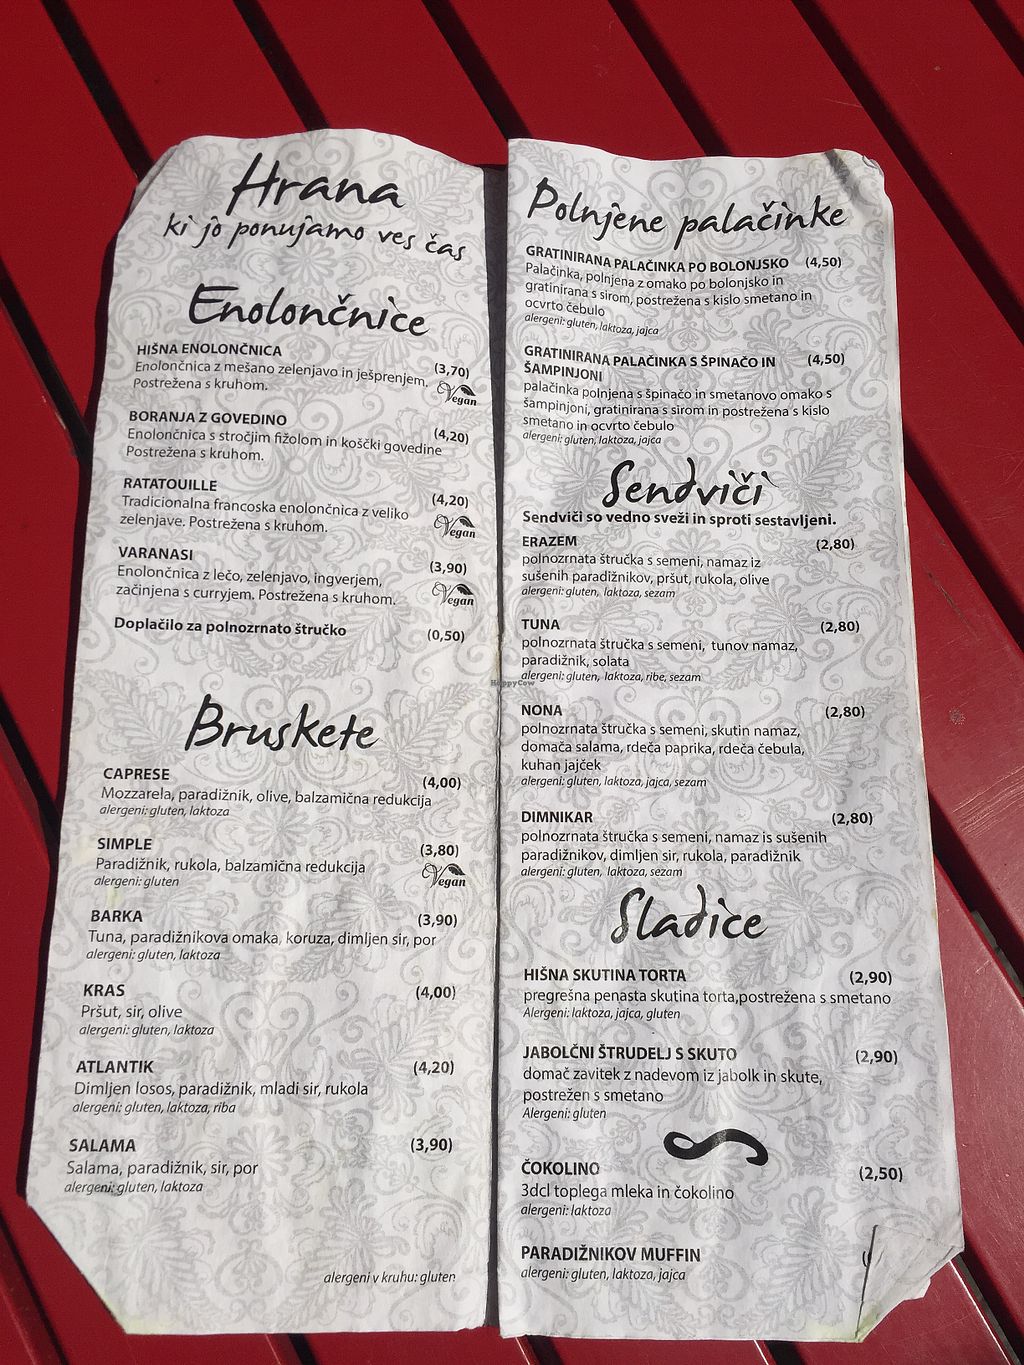 Hrana
ki jo ponujamo ves čas
Enolončnice
HIŠNA ENOLONČNICA (3,70)
Enolončnica z mešano zelenjavo in ješprenjem.
Postrežena s kruhom. Vegan
BORANJA Z GOVEDINO (4,20)
Enolončnica s stročjim fižolom in koščki govedine
Postrežena s kruhom.
RATATOUILLE (4,20)
Tradicionalna francoska enolončnica z veliko
zelenjave. Postrežena s kruhom. Vegan
VARANASI (3,90)
Enolončnica z lečo, zelenjavo, ingverjem,
začinjena s curryjem. Postrežena s kruhom. Vegan
Doplačilo za polnozrnato štručko (0,50)
Bruskete
CAPRESE (4,00)
Mozzarela, paradižnik, olive, balzamična redukcija
alergeni: gluten, laktoza
SIMPLE (3,80)
Paradižnik, rukola, balzamična redukcija Vegan
alergeni: gluten
BARKA (3,90)
Tuna, paradižnikova omaka, koruza, dimljen sir, por
alergeni: gluten, laktoza
KRAS (4,00)
Pršut, sir, olive
alergeni: gluten, laktoza
ATLANTIK (4,20)
Dimljen losos, paradižnik, mladi sir, rukola
alergeni: gluten, laktoza, riba
SALAMA (3,90)
Salama, paradižnik, sir, por
alergeni: gluten, laktoza
alergeni v kruhu: gluten
Polnjene palačinke
GRATINIRANA PALAČINKA PO BOLONJSKO (4,50)
Palačinka, polnjena z omako po bolonjsko in
gratinirana s sirom, postrežena s kislo smetano in
ocvrto čebulo
alergeni: gluten, laktoza, jajca
GRATINIRANA PALAČINKA S ŠPINAČO IN (4,50)
ŠAMPINJONI
palačinka polnjena s špinačo in smetanovo omako s
šampinjoni, gratinirana s sirom in postrežena s kislo
smetano in ocvrto čebulo
alergeni: gluten, laktoza, jajca
Sendviči
Sendviči so vedno sveži in sproti sestavljeni.
ERAZEM (2,80)
polnozrnata štručka s semeni, namaz iz
sušenih paradižnikov, pršut, rukola, olive
alergeni: gluten, laktoza, sezam
TUNA (2,80)
polnozrnata štručka s semeni, tunov namaz,
paradižnik, solata
alergeni: gluten, laktoza, ribe, sezam
NONA (2,80)
polnozrnata štručka s semeni, skutin namaz,
domača salama, rdeča paprika, rdeča čebula,
kuhan jajček
alergeni: gluten, laktoza, jajca, sezam
DIMNIKAR (2,80)
polnozrnata štručka s semeni, namaz is sušenih
paradižnikov, dimljen sir, rukola, paradižnik
alergeni: gluten, laktoza, sezam
Sladice
HIŠNA SKUTINA TORTA (2,90)
pregrešna penasta skutina torta,postrežena s smetano
Alergeni: laktoza, jajca, gluten
JABOLČNI ŠTRUDELJ S SKUTO (2,90)
domač zavitek z nadevom iz jabolk in skute,
postrežen s smetano
Alergeni: gluten
ČOKOLINO (2,50)
3dcl toplega mleka in čokolino
alergeni: laktoza
PARADIŽNIKOV MUFFIN
alergeni: gluten, laktoza, jajca
HappyCow